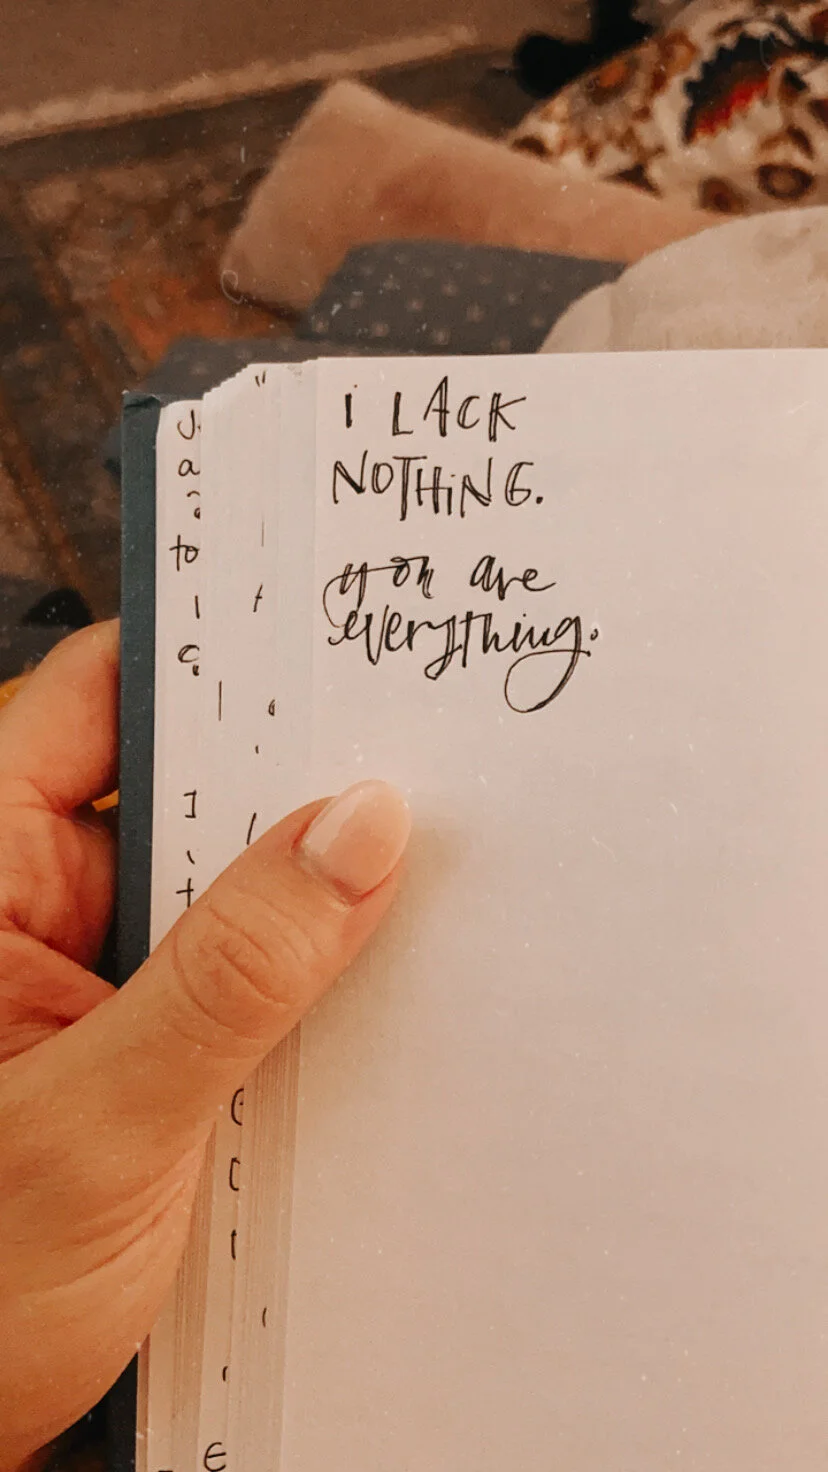 i LACK
NOTHiNG.
you are
everything.
J.
a
to
I
E